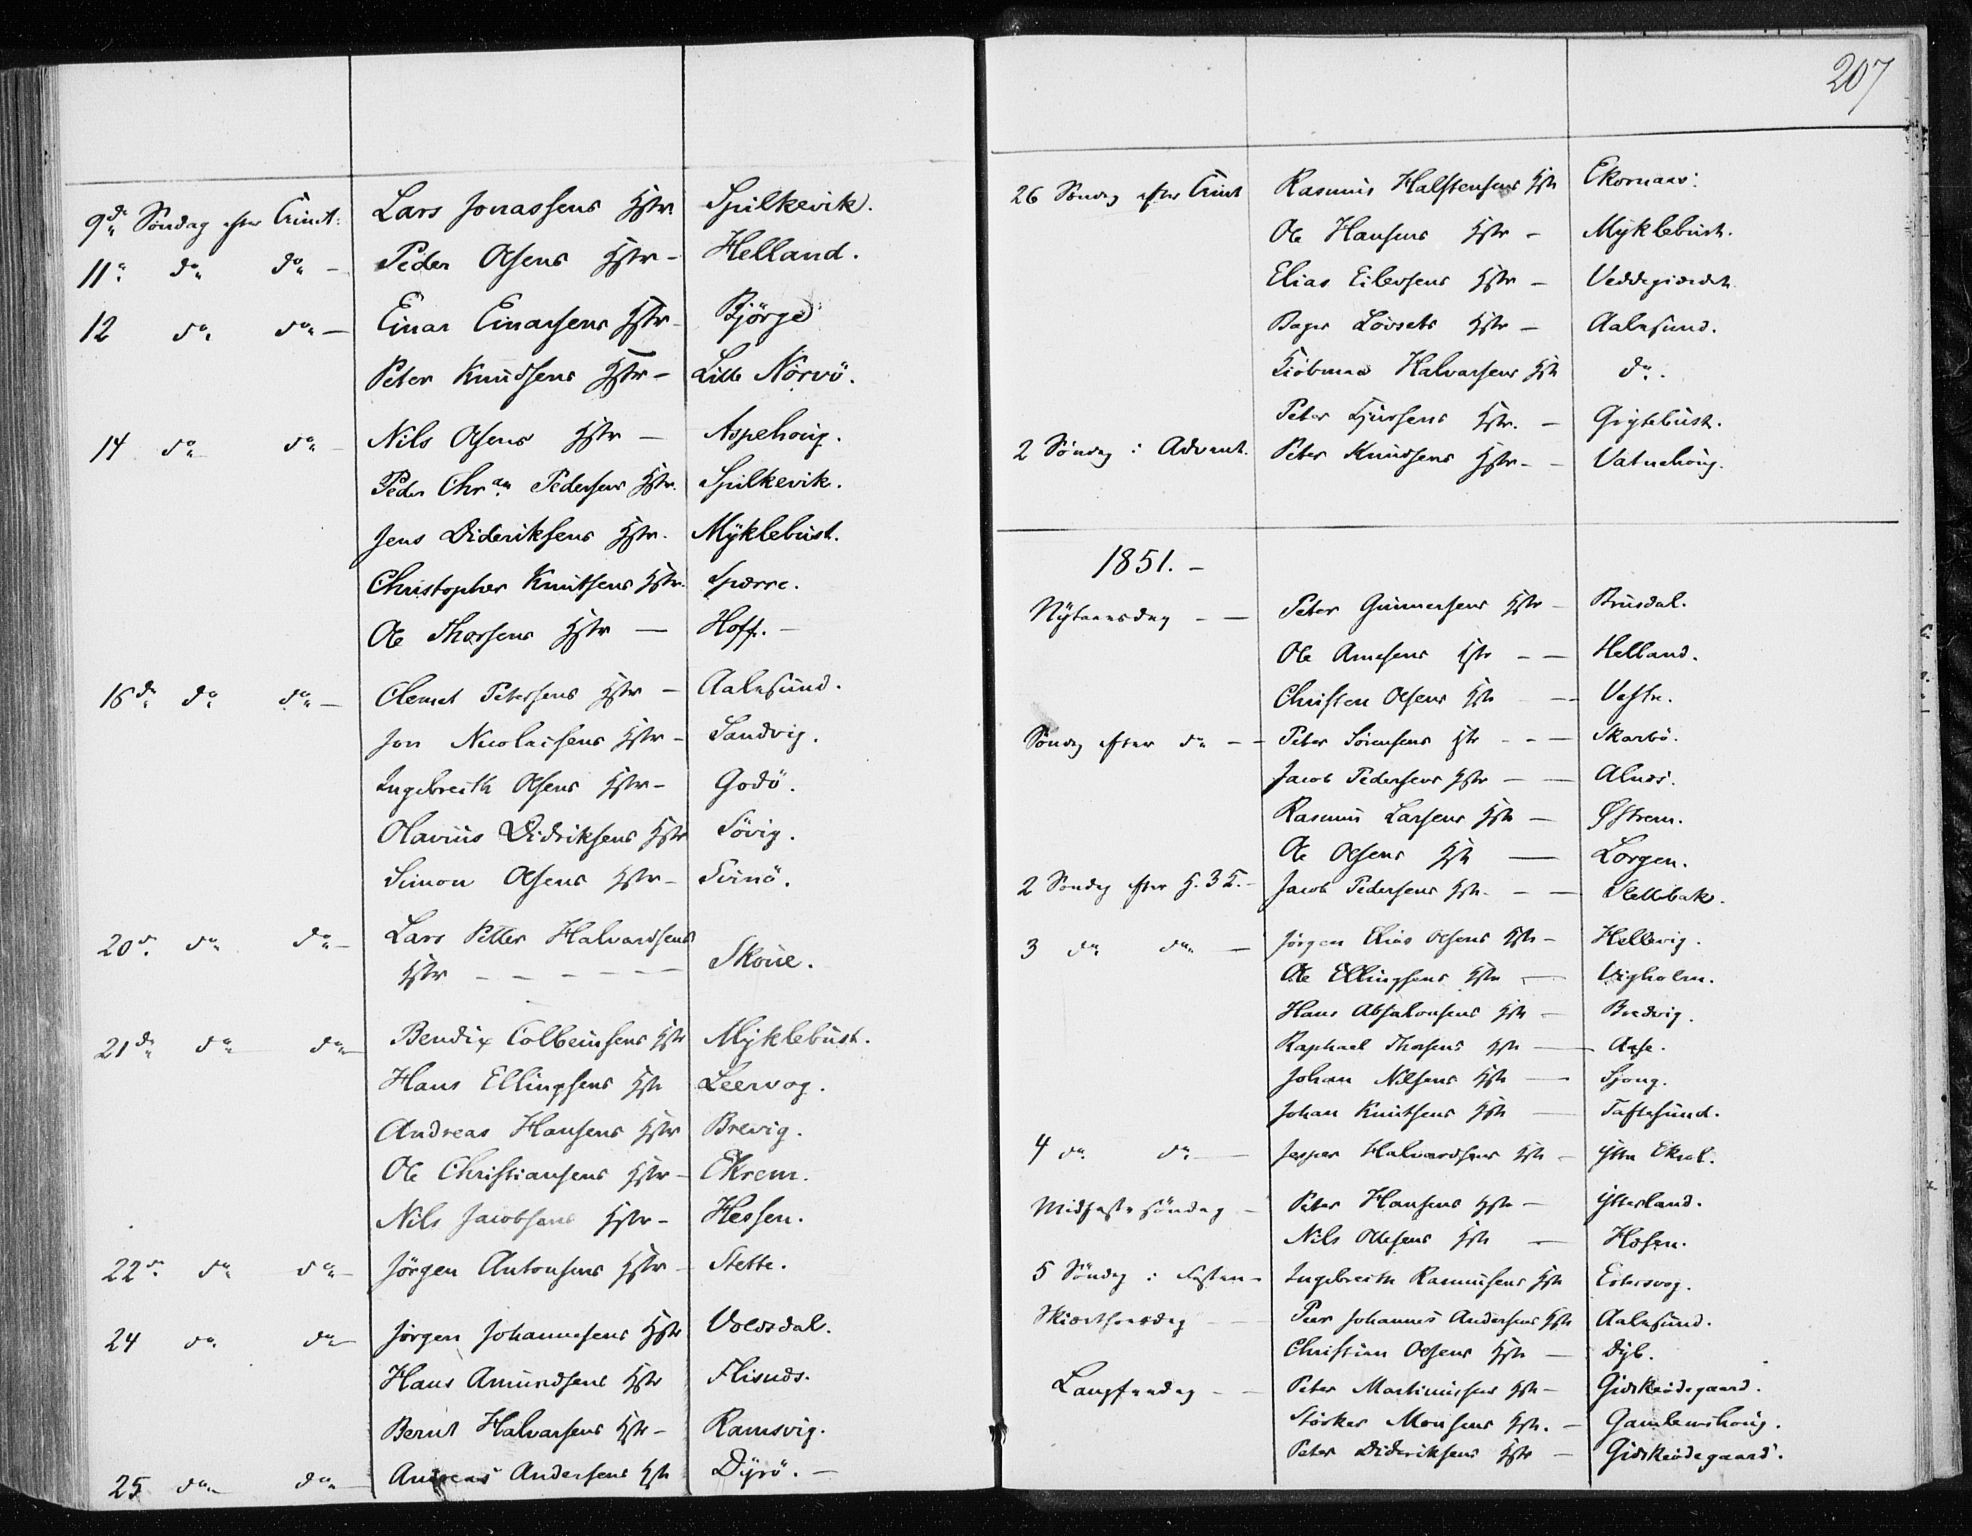 9de Søndag efter Trinit: Lars Jonassens Hstr Spilkevik.
11" do do - Peder Olsens Hstr - Helland.
12 do do - Einar Einarsens Hstr - Bjørge
Peter Knudsens Hstr - Lille Nørvö.
14 do do - Nils Olsens Hstr - Aspehoug.
Peder Chran Pedersens Hstr. Spilkevik.
Jens Dideriksens Hstr. Myklebust.
Christopher Knutsens Hstr. Sperre.
Ole Thorsens Hstr - Hoff. -
18de do do - Clemet Petersens Hstr - Aalesund.
Jon Nicolaisens Hstr - Sandvig.
Ingebreith Olsens Hstr - Godö.
Olavius Didriksens Hstr Sövig.
Simon Olsens Hstr - Svinö.
20d. do do - Lars Petter Halvardsens
Hstr - - - - - - Skoue.
21de do do - Bendix Colbeinsens Hstr Myklebust.
Hans Ellingsens Hstr Leervog.
Andreas Hansens Hstr Brevig.
Ole Christiansens Hstr - Ekrem.
Nils Jacobsens Hstr - Hessen.
22de do do - Jörgen Antonsens Hstr - Stette.
24 do do Jörgen Johannesens Hstr Voldsdal.
Hans Amundsens Hstr Flisnæs.
Bernt Halvarsens Hstr - Ramsvig.
25 do do - Andreas Andersens Hstr Dyrö. -
207
26 Søndag efter Trinit Rasmus Halstensens Hstr Ekornaas.
Ole Hansens Hstr - Myklebust.
Elias Eilersens Hstr - Veddegierdet
Bager Lövsets Hstr - Aalesund.
Kiöbmand Halvarsens Hstr do.
Peter Sjursens Hstr. - Gigtebust.
2 Søndag i Advent. Peter Knudsens Hstr - - Vatnehoug.
1851. -
Nytaarsdag - - Peter Gunnersens Hstr - Brusdal.
Ole Arnesens Hstr - - Helland.
Christen Olsens Hstr - - Vestre.
Søndag efter do - - Peter Sörensens Hstr - - - Skarbö.
Jacob Pedersens Hstr - - Alnæs.
Rasmus Larsens Hstr - Østrem.
Ole Olsens Hstr - Lorgen.
2 Søndag efter H. 3 K. - Jacob Pedersens Hstr. - - Slettebak.
3 do do - Jörgen Elias Olsens Hstr - Hellevig.
Ole Ellingsens Hstr - Vigholm.
Hans Absalonsens Hstr - Bredvig.
Raphael Thorsens Hstr - Aase.
Johan Nilsens Hstr - Sjong.
Johan Knutsens Hstr - Taftesund.
4 do do - Jesper Halvardsens Hstr - Ytre Ekset.
Midfastesøndag - Peter Hansens Hstr - Ytterland.
Nils Olsens Hstr - Hosen.
5 Søndag i Fasten - Ingebreith Rasmusens Hstr Estersvog.
Skiærthorsdag - - Peer Johannes Andersens Hstr Aalesund.
Christian Olsens Hstr - Dyb.
Langfredag - - Peter Martinussens Hstr - Gidskeødegaard.
Störker Monsens Hstr. - Gamlemshoug.
Peter Dideriksens Hstr - Gidskeødegaard.